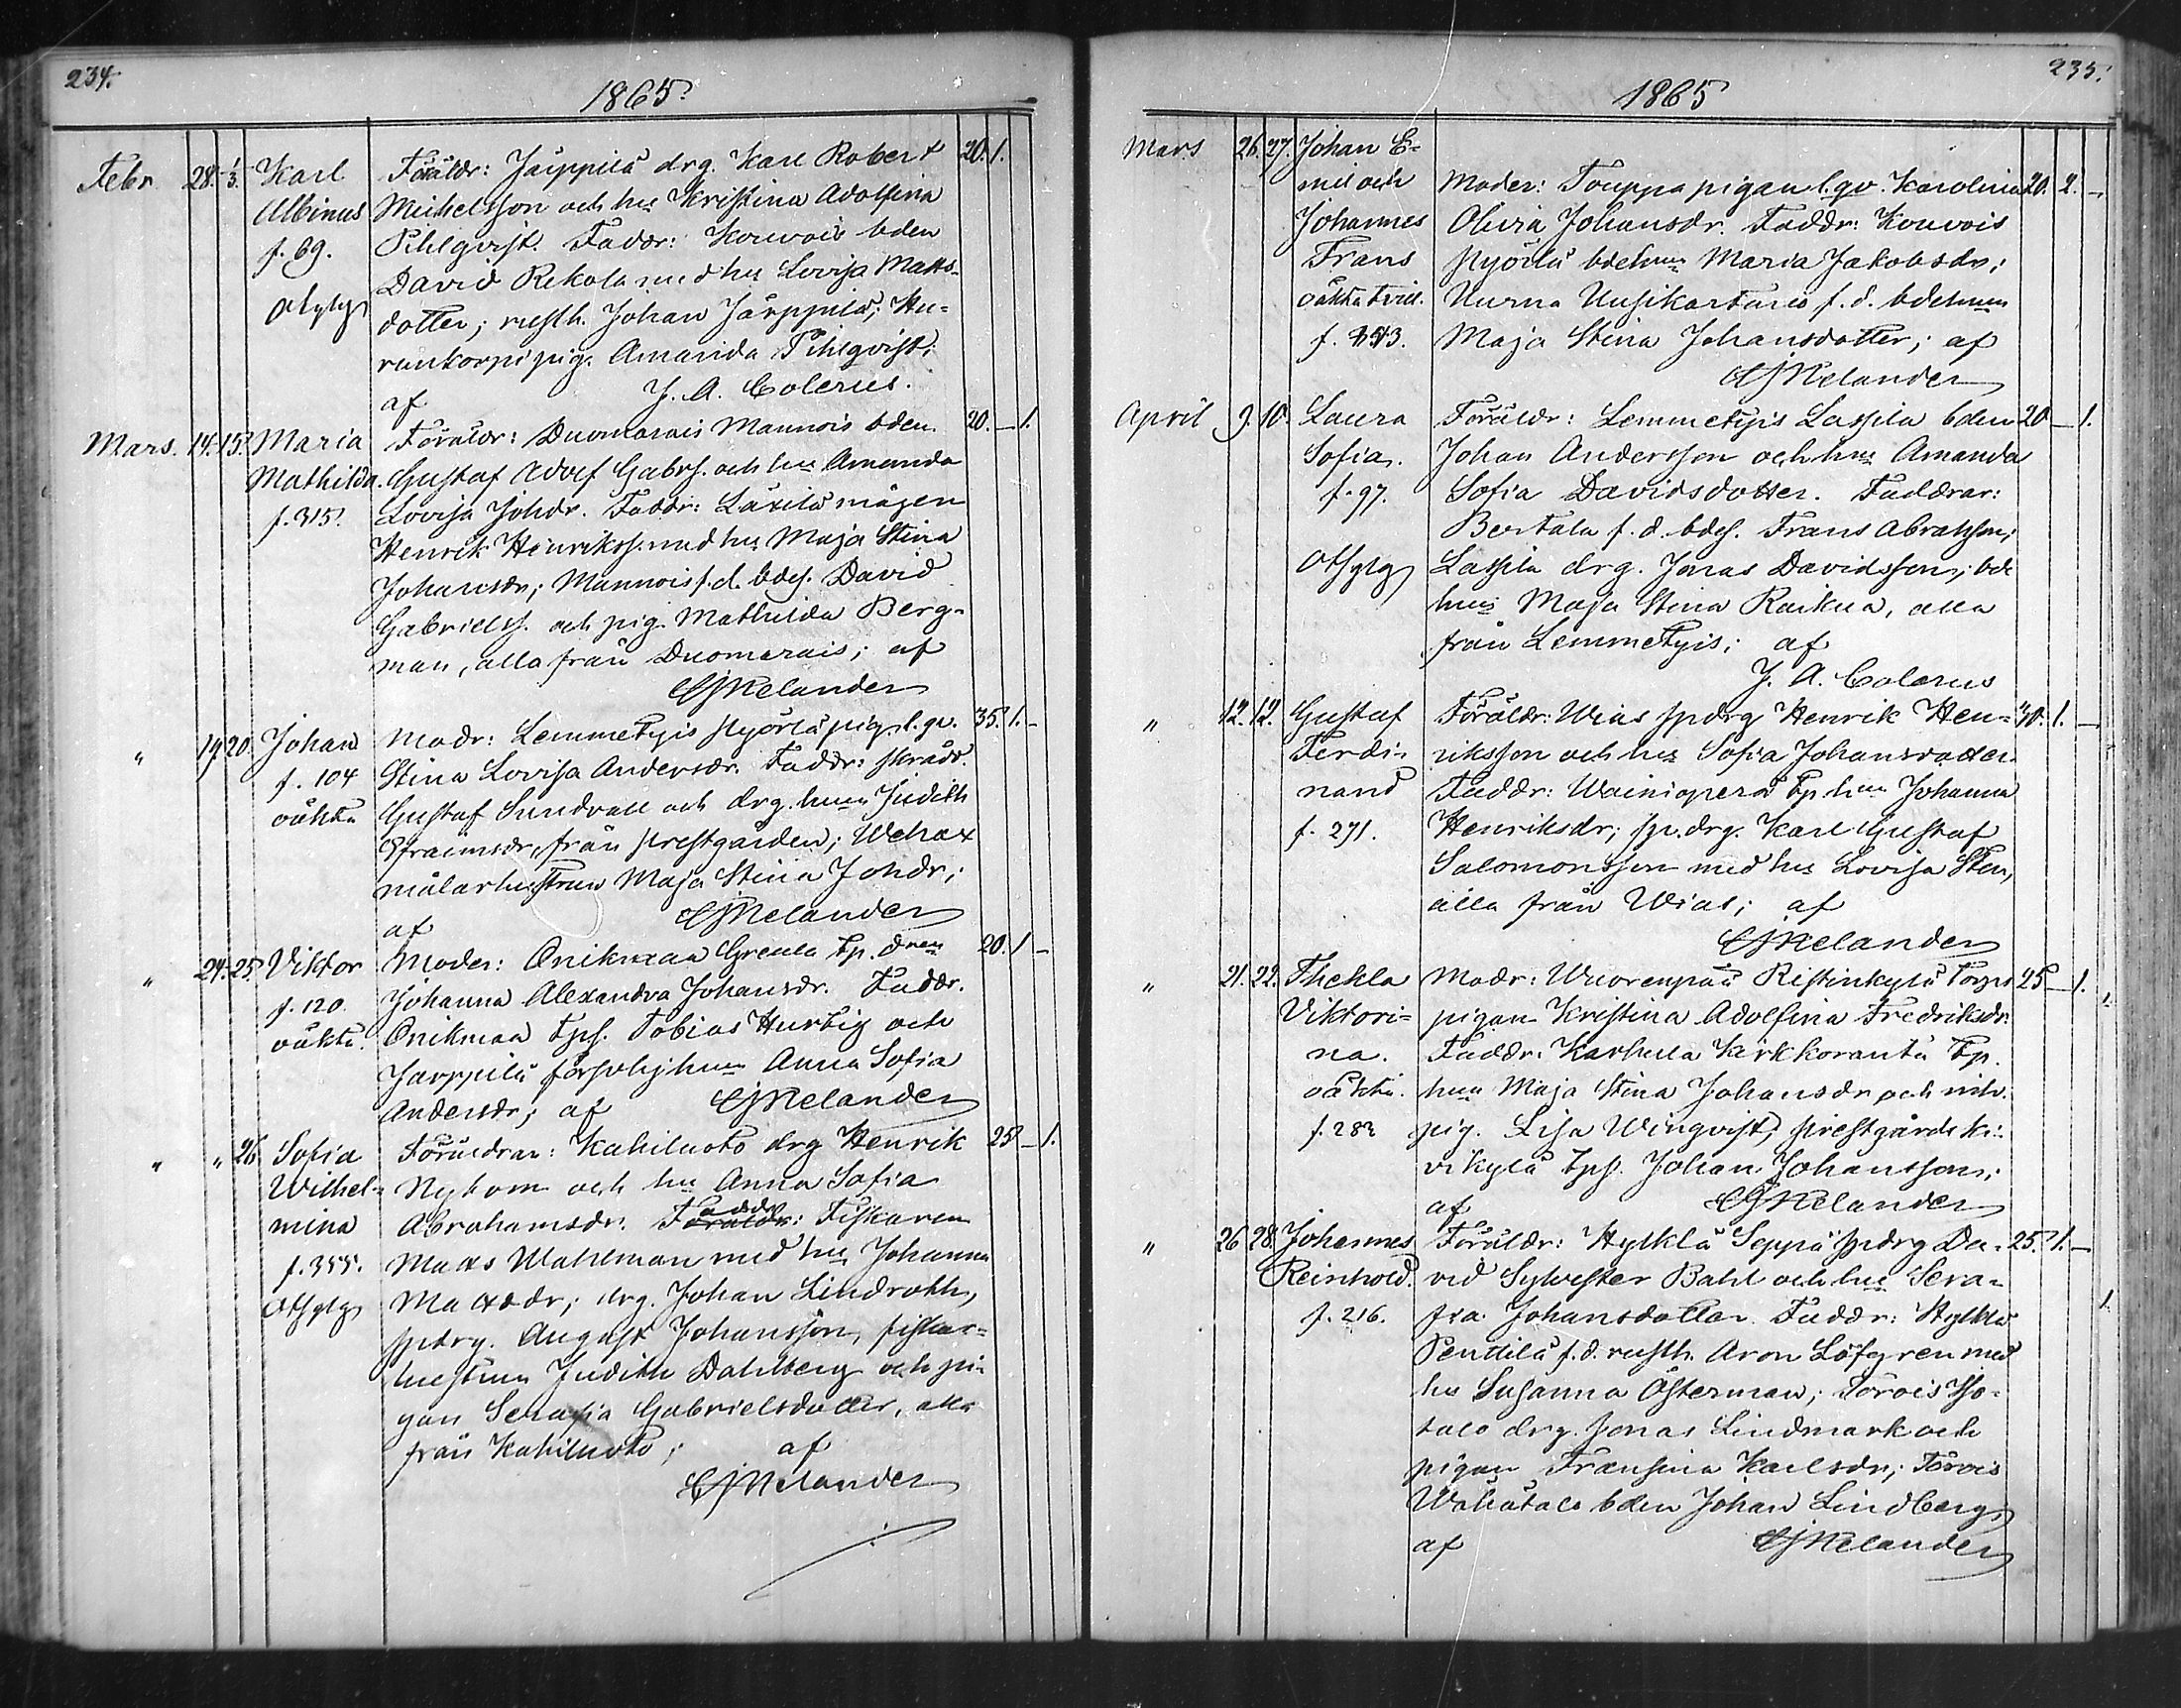 234.
1865.
Febr. 28. 1/3. Karl Albinus f. 69. Föräldr: Järppilä drg. Karl Robert 20. 1.
Michelsson och hu Kristina Adolfina
Pihlqvist. Faddr: Kouvois bden
David Rekola med hu Lovisa Matts-
dotter; rusth. Johan Järppilä; Hu-
runkorpi pig. Amanda Pihlqvist;
af J. A. Colerus.
Mars. 14. 15. Maria Mathilda. f. 315. Föräldr: Duomarais Mannois bden. 20. – 1.
Gustaf Adolf Gabrs. och hu Amanda
Lovisa Johdr. Faddr: Laxila mågen
Henrik Henrikss. med hu Maja Stina
Johansdr; Mannois f.d. bdes. David
Gabrielss. och pig. Mathilda Berg-
man, alla från Duomarais; af
CJMelander
" 19. 20. Johan f. 104 oäkta Modr: Lemmetyis Pyörlä pig. l. qv. 35. 1. –
Stina Lovisa Andersdr. Faddr: skrädd.
Gustaf Sundvall och drg. hun Judith
Efraimsdr, från Prestgården; Wehax
målarhustrun Maja Stina Johdr;
af CJMelander
" 24. 25. Viktor f. 120. oäkta. Moder: Onikmaa Greula tp. dren 20. 1 –
Johanna Alexandra Johansdr. Faddr.
Onikmaa tps. Tobias Hurtig och
Jarppilä hun Anna Sofia
Andersdr; af CJMelander
" " 26. Sofia Wilhel- mina f. 355. Föräldrar: Kahiluoto drg Henrik 25 – 1.
Nybom och hu Anna Sofia
Abrahamsdr. Faddr: Fiskaren
Matts Wahlman med hu Johanna
Mattsdr; drg. Johan Lindroth,
spdrg. August Johansson, fiskar-
hustrun Judith Dahlberg och pi-
gan Serafia Gabrielsdotter, alla
från Kahiluoto; af
CJMelander
235.
1865
Mars 26. 27. Johan E-
mil och Johannes Frans oäkta tvill. Moder: Touppa pigan l. qv. Karolina 20. 2. –
Olivia Johansdr. Faddr: Kouvois
Pyörlä bdehun Maria Jakobsdr;
Nurna Uusikartano f. d. bdehun
Maja Stina Johansdotter; af
CJMelander
April 9. 10. Laura Sofia. f. 97. Föräldr: Lemmetyis Lassila bden 20 – 1.
Johan Andersson och hu Amanda
Sofia Davidsdotter. Faddrar:
Bertala f. d. bdes. Frans Abrahsson;
Lassila drg. Jonas Davidsson; bde
hun Maja Stina Raikua, alla
från Lemmetyis; af
J. A. Colerus
" 12. 12. Gustaf Ferdi- nand f. 271. Föräldr: Wias spdrg Henrik Hen- 40. 1. –
riksson och hu Sofia Johansdotter
Faddr: Wainiopera tp. hun Johanna
Henriksdr; sp. drg. Karl Gustaf
Salomonsson med hu Lovisa Sten,
alla från Wias; af
CJMelander
" 21. 22. Thekla Viktori- na. oäkta. f. 283 Modr: Wuorenpää Ristinkylä torps 25 – 1.
pigan Kristina Adolfina Fredriksdr.
Faddr: Karhula Kirkkoranta tp.
hun Maja Stina Johansdr och inh.
pig. Lisa Winqvist, prestgårds Ki-
vikylä tps. Johan Johansson;
af CJMelander
" 26 28. Johannes Reinhold. f. 216. Föräldr: Hylklä Seppä spdrg Da- 25. 1. –
vid Sylvester Bahl och hu Sera-
fia Johansdotter. Faddr: Hylklä
Penttilä f. d. rusth. Aron Löfgren med
hu Susanna Österman; Torois Iso-
talo drg. Jonas Lindmark och
pigan Fransina Karlsdr; Torois
Wähätalo bden Johan Lindberg;
af CJMelander